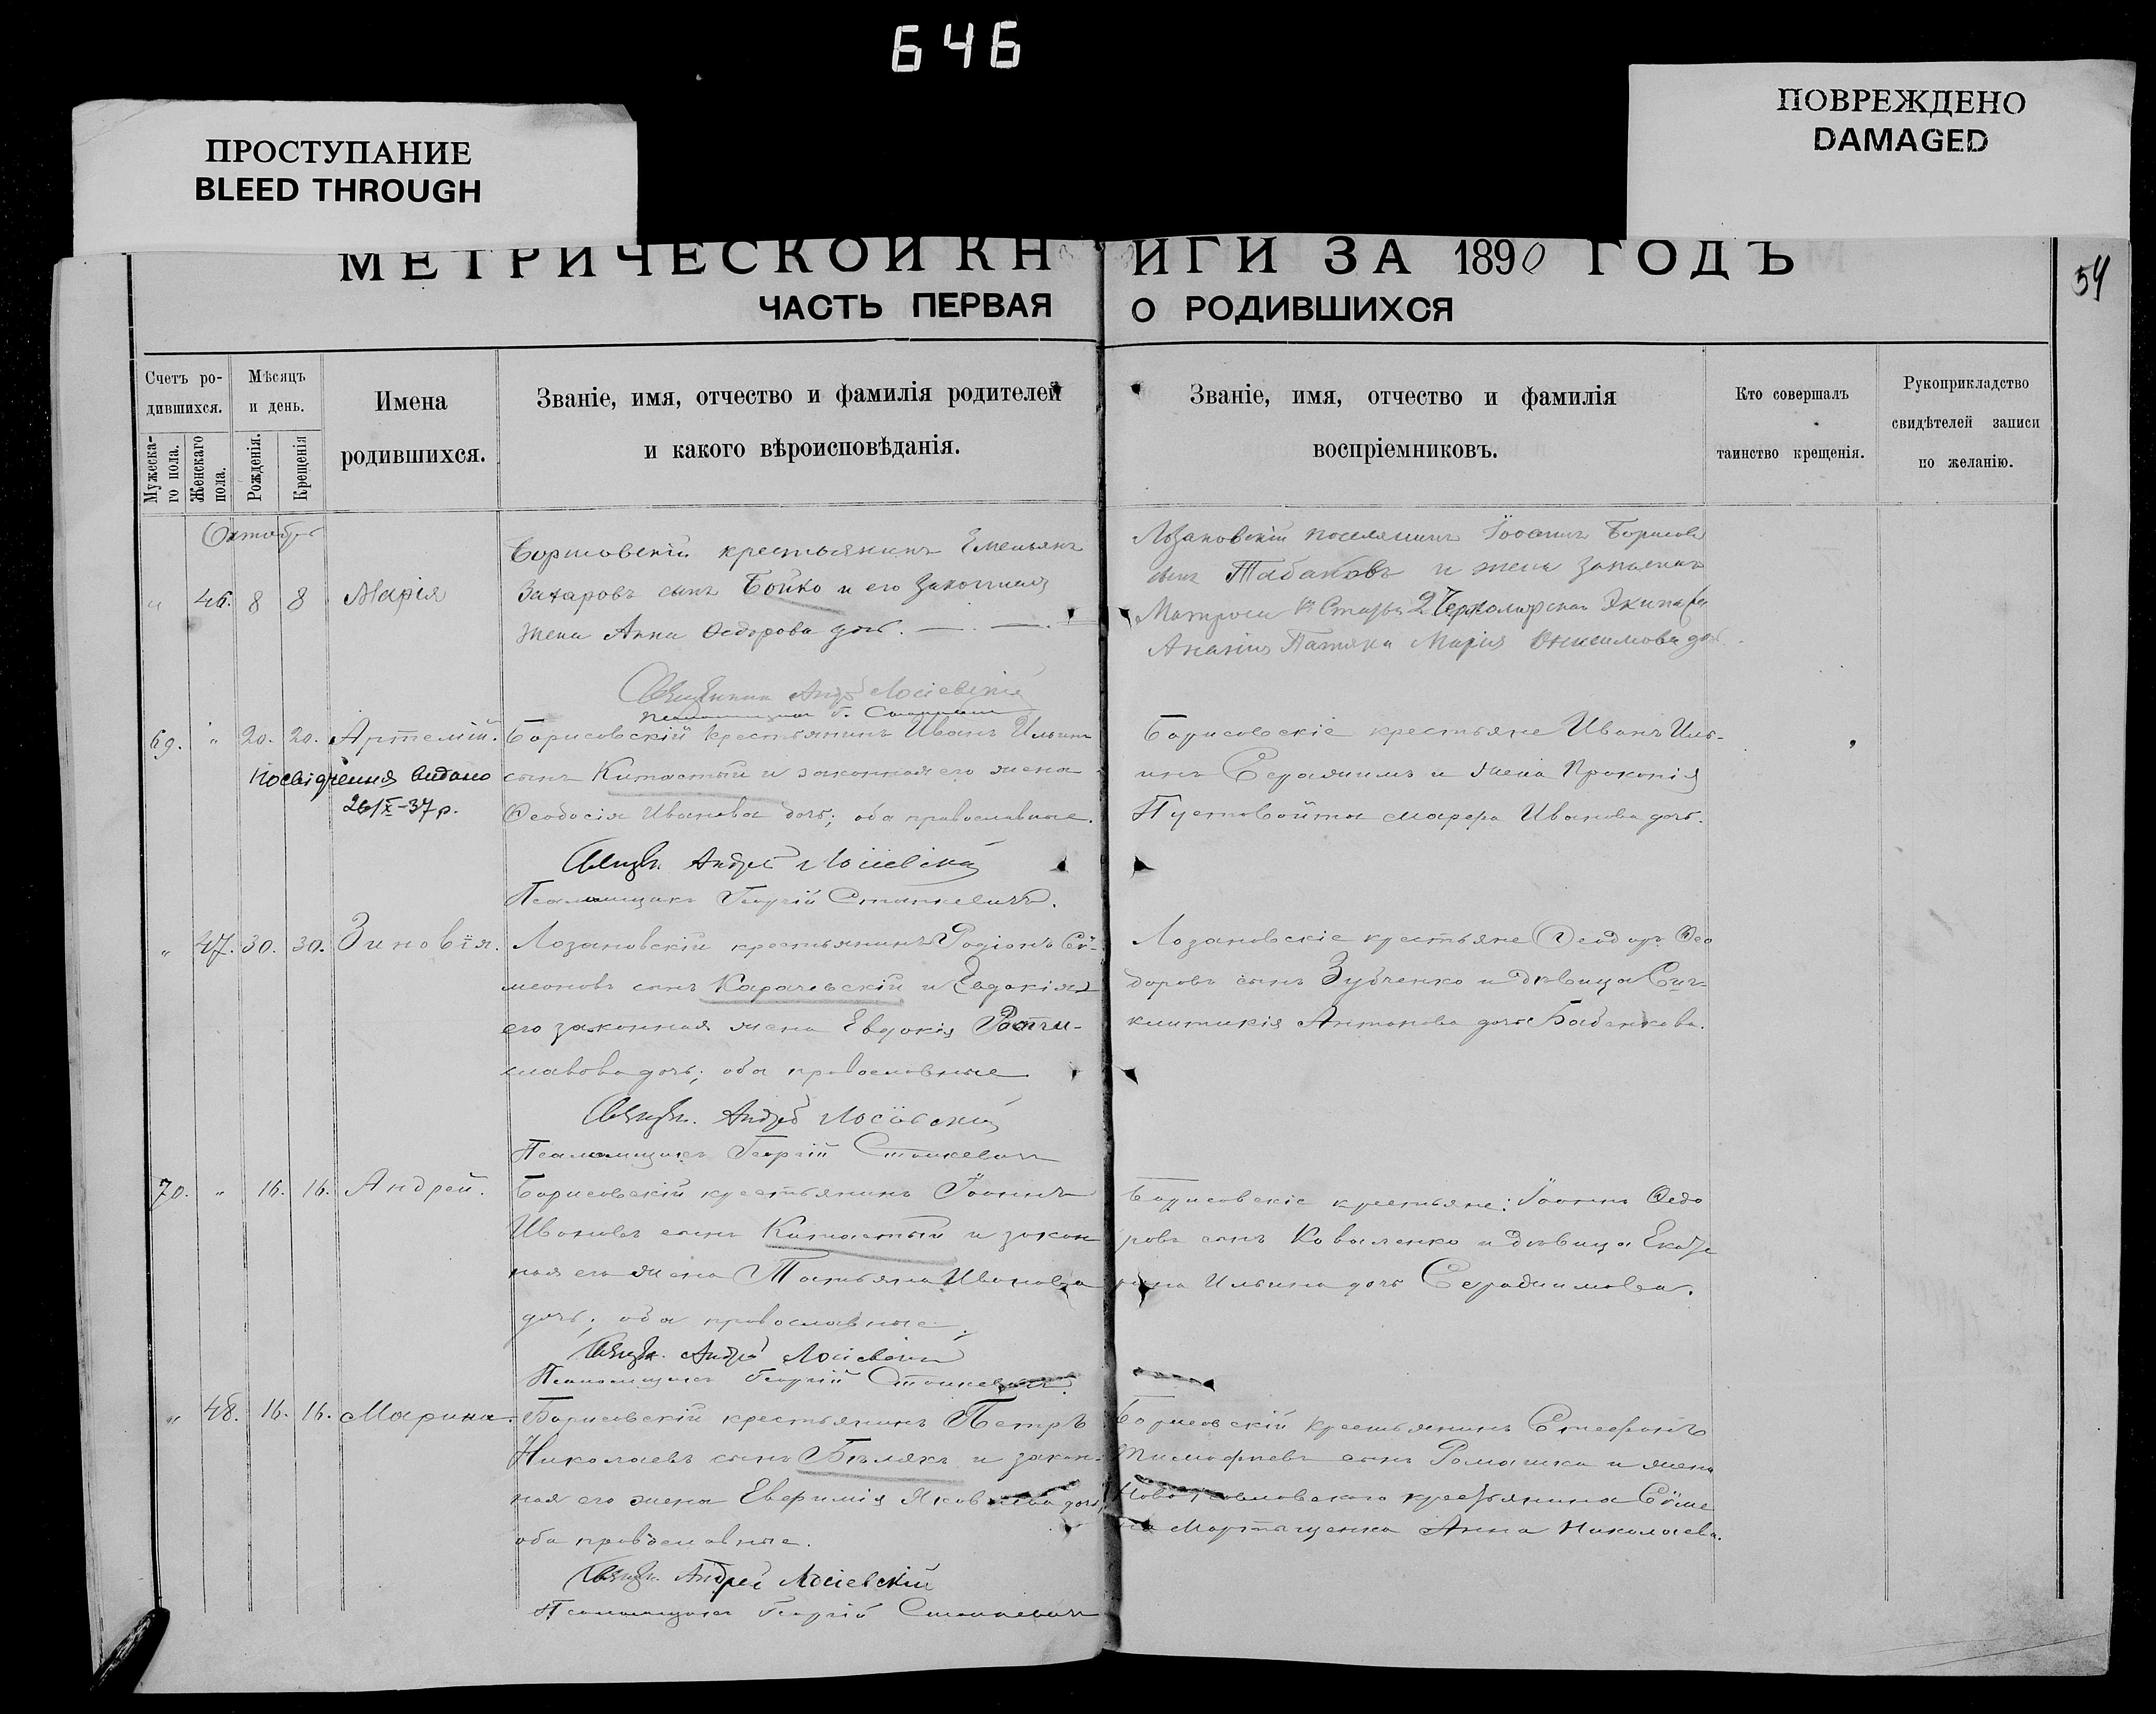 646
ПРОСТУПАНИЕ
BLEED THROUGH
ПОВРЕЖДЕНО
DAMAGED
МЕТРИЧЕСКОЙ КНИГИ ЗА 1890 ГОДЪ
54
ЧАСТЬ ПЕРВАЯ О РОДИВШИХСЯ
Счетъ ро-
дившихся.
Мужеска-
го пола.
Женскаго
пола.
Мѣсяцъ
и день.
Рожденія.
Крещенія
Имена
родившихся.
Званіе, имя, отчество и фамилія родителей
и какого вѣроисповѣданія.
Званіе, имя, отчество и фамилія
воспріемниковъ.
Кто совершалъ
таинство крещенія.
Рукоприкладство
свидѣтелей записи
по желанію.
Октябрь
" 46. 8 8 Марія
Борисовскій крестьянинъ Емельянъ
Захаровъ сынъ Бойко и его законная
жена Анна Ѳедорова дочь.
Лозановскій поселянинъ Іоаннъ Борисовъ
сынъ Табаковъ и жена
Матроса 2 Черноморскаго Экипажа
Ананія Марія Онисимова доч.
Священникъ Андрей Лосіевскій
69. " 20. 20. Артемій.
Посвідчення видано
26/X-37 р.
Борисовскій крестьянинъ Иванъ Ильинъ
сынъ Китастый и законная его жена
Ѳеодосія Иванова дочь; оба православные.
Борисовскіе крестьяне Иванъ Иль-
инъ и жена Прокопія
Пустовойта Марфа Иванова дочь.
Священ. Андрей Лосіевскій
Псаломщикъ Георгій Станкевичъ.
" 47. 30. 30. Зиновія.
Лозановскій крестьянинъ Родіонъ Сѵ-
меоновъ сынъ Карачевскій и Евдокія
его законная жена Евдокія Рости-
славова дочь; оба православные
Лозановскіе крестьяне Ѳеодоръ Ѳео
доровъ сынъ Зубченко и дѣвица Сѵн-
клитикія Антонова дочь Бабенкова.
Священ. Андрей Лосіевскій
Псаломщикъ Георгій Станкевичъ
70. " 16. 16. Андрей.
Борисовскій крестьянинъ Іоаннъ
Ивановъ сынъ Китастый и закон
ная его жена Татьяна Иванова
дочь; оба православные.
Борисовскіе крестьяне: Іоаннъ Ѳедо
ровъ сынъ Коваленко и дѣвица Екате
рина Ильина дочь Серадимова.
Священ. Андрей Лосіевскій
Псаломщикъ Георгій Станкевичъ.
" 48. 16. 16. Марина.
Борисовскій крестьянинъ Петръ
Николаевъ сынъ Бѣлякъ и закон-
ная его жена Евфимія Яковлева дочь,
оба православные.
Борисовскій крестьянинъ Стефанъ
Тимофѣевъ сынъ Ромашка и жена
крестьянина Сѵме
на Мартыщенка Анна Николаева.
Священ. Андрей Лосіевскій
Псаломщикъ Георгій Станкевичъ